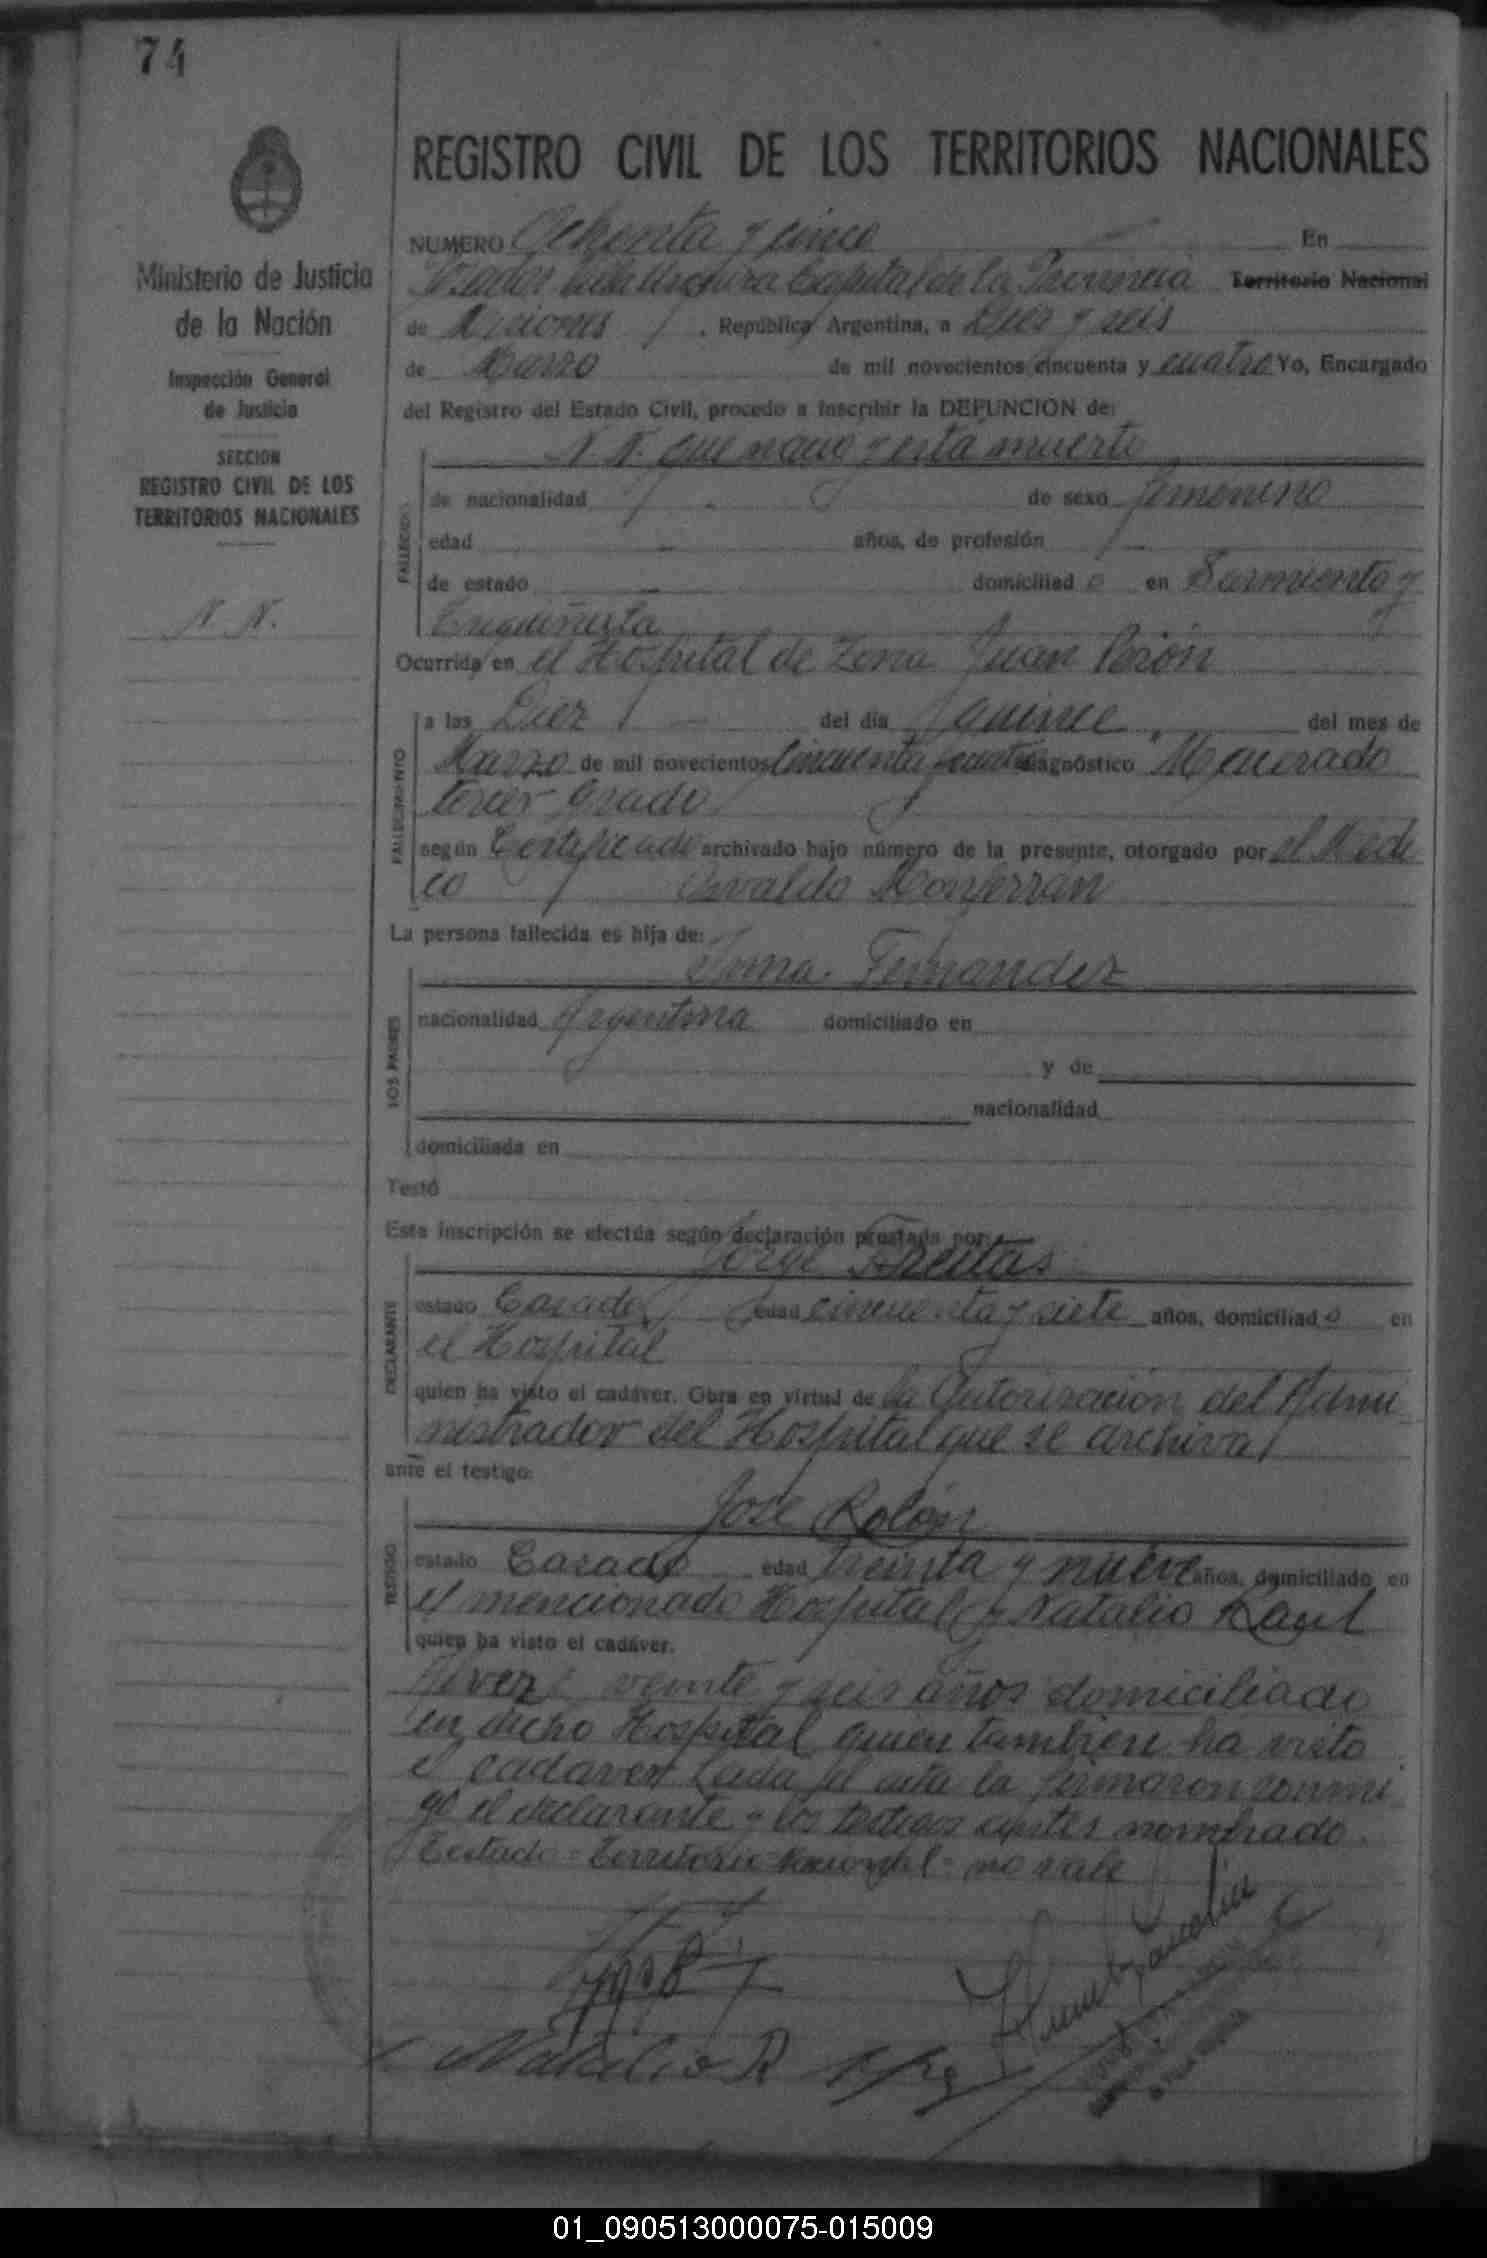 74
REGISTRO CIVIL DE LOS TERRITORIOS NACIONALES
Ministerio de Justicia
de la Nación
Inspección General
de Justicia
SECCION
REGISTRO CIVIL DE LOS
TERRITORIOS NACIONALES
N. N.
NUMERO Ochenta y cinco En
Posadas Capital de la Provincia Territorio Nacional
de Misiones, República Argentina, a Diez y seis
de Marzo de mil novecientos cincuenta y cuatro Yo, Encargado
del Registro del Estado Civil, procedo a inscribir la DEFUNCION de:
N. N. que nació y está muerta
FALLECIDO
de nacionalidad de sexo femenino
edad años, de profesión
de estado domiciliad o en Sarmiento y
Ocurrida en el Hospital de Zona Juan Perón
FALLECIMIENTO
a las Diez del día quince del mes de
Marzo de mil novecientos cincuenta y cuatro diagnóstico
tercer grado
según Certificado archivado bajo número de la presente, otorgado por el Médi
co Osvaldo Monferran
La persona fallecida es hija de:
Fernandez
LOS PADRES
nacionalidad Argentina domiciliado en
y de
nacionalidad
domiciliada en
Testó
Esta inscripción se efectúa según declaración prestada por:
Jorge Freitas
DECLARANTE
estado Casado edad cincuenta y siete años, domiciliad o en
el Hospital
quien ha visto el cadáver. Obra en virtud de la Autorización del Admi
nistrador del Hospital que se archiva
ante el testigo:
José Rolón
TESTIGO
estado Casado edad treinta y nueve años, domiciliado en
el mencionado Hospital y Natalio Raul
quien ha visto el cadáver.
veinte y seis años domiciliado
en dicho Hospital quien tambien ha visto
el cadaver Leida el acta la firmaron conmi
go el declarante y los testigos antes nombrado.
Testado = Territorio Nacional = no vale
Natalio R
01_090513000075-015009